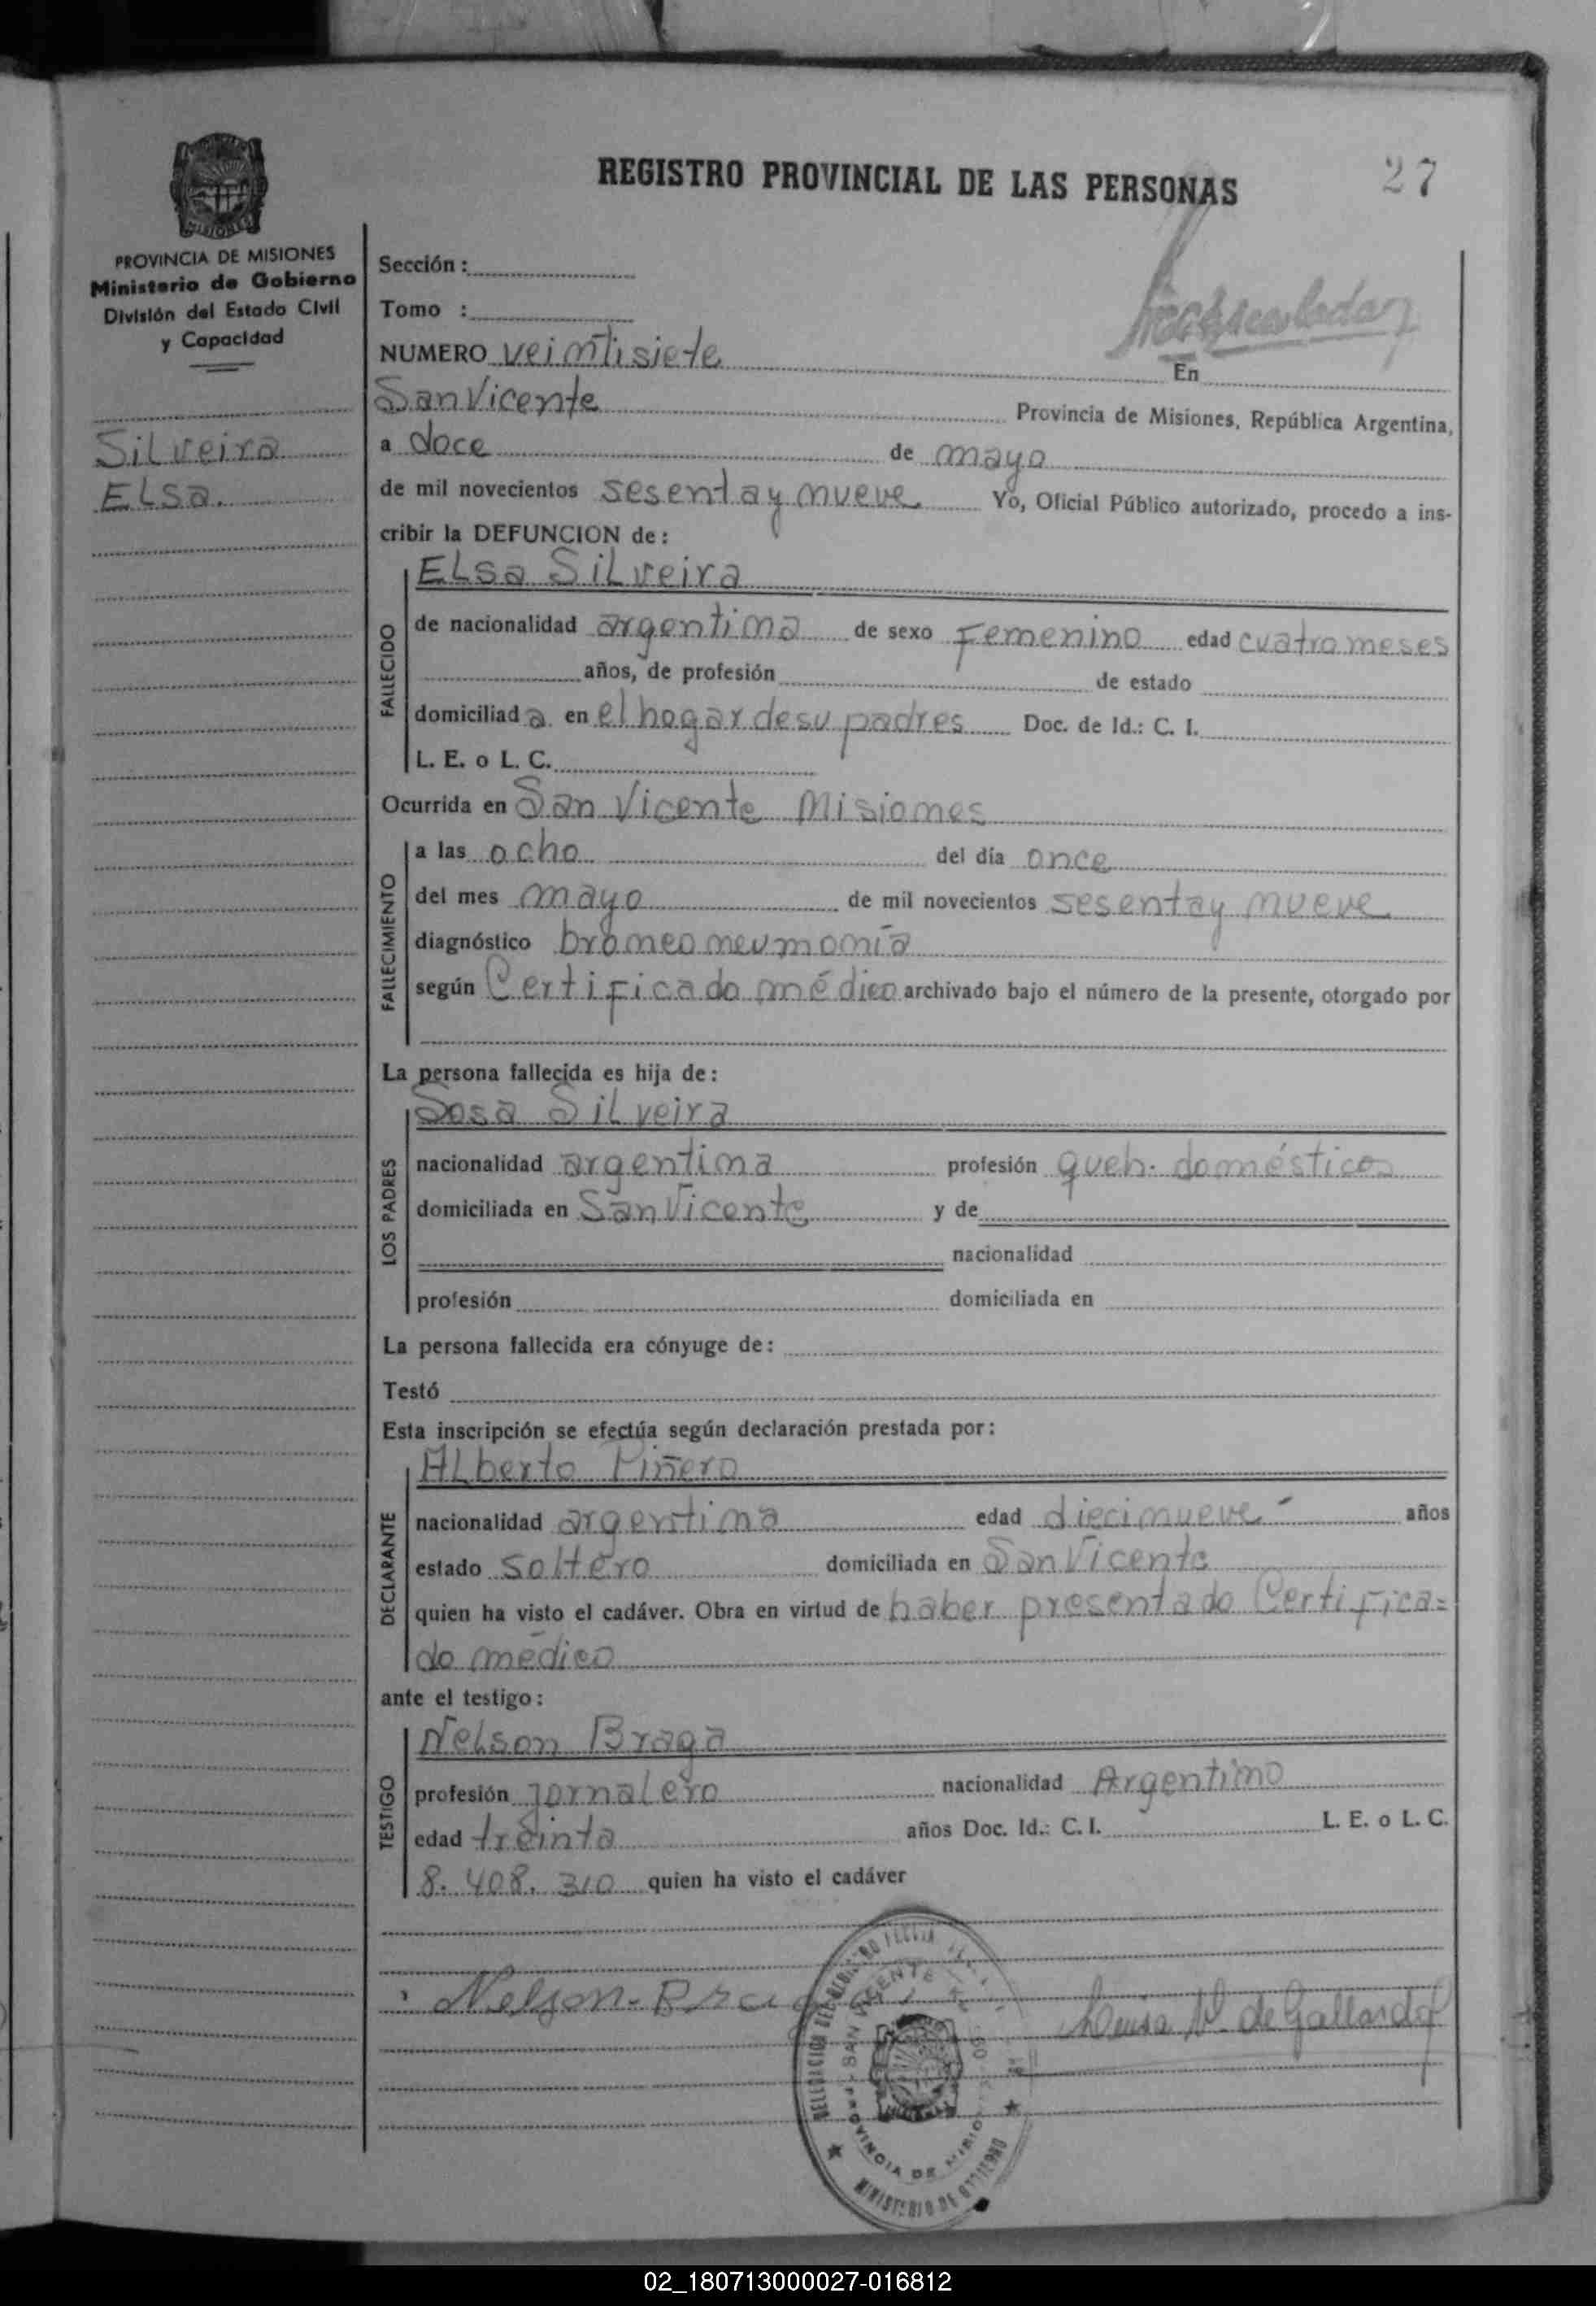 REGISTRO PROVINCIAL DE LAS PERSONAS
27
PROVINCIA DE MISIONES
Ministerio de Gobierno
División del Estado Civil
y Capacidad
Silveira
Elsa.
Sección :
Tomo :
NUMERO veintisiete En
San Vicente Provincia de Misiones, República Argentina,
a doce de mayo
de mil novecientos sesenta y nueve Yo, Oficial Público autorizado, procedo a ins-
cribir la DEFUNCION de :
FALLECIDO
Elsa Silveira
de nacionalidad argentina de sexo Femenino edad cuatro meses
años, de profesión de estado
domiciliad a en el hogar de su padres Doc. de Id.: C. I.
L. E. o L. C.
Ocurrida en San Vicente Misiones
FALLECIMIENTO
a las ocho del día once
del mes mayo de mil novecientos sesenta y nueve
diagnóstico bronconeumonía
según Certificado médico archivado bajo el número de la presente, otorgado por
La persona fallecida es hija de :
LOS PADRES
Sosa Silveira
nacionalidad argentina profesión queh. domésticos
domiciliada en San Vicente y de
nacionalidad
profesión domiciliada en
La persona fallecida era cónyuge de :
Testó
Esta inscripción se efectúa según declaración prestada por :
DECLARANTE
Alberto Piñero
nacionalidad argentina edad diecinueve años
estado soltero domiciliada en San Vicente
quien ha visto el cadáver. Obra en virtud de haber presentado Certifica=
do médico
ante el testigo :
TESTIGO
Nelson Braga
profesión jornalero nacionalidad Argentino
edad treinta años Doc. Id.: C. I. L. E. o L. C.
8. 408. 310 quien ha visto el cadáver
Nelson - Braga
Luisa N. de Gallardo
SAN VICENTE
PROVINCIA DE MISIONES
MINISTERIO DE GOBIERNO
02_180713000027-016812